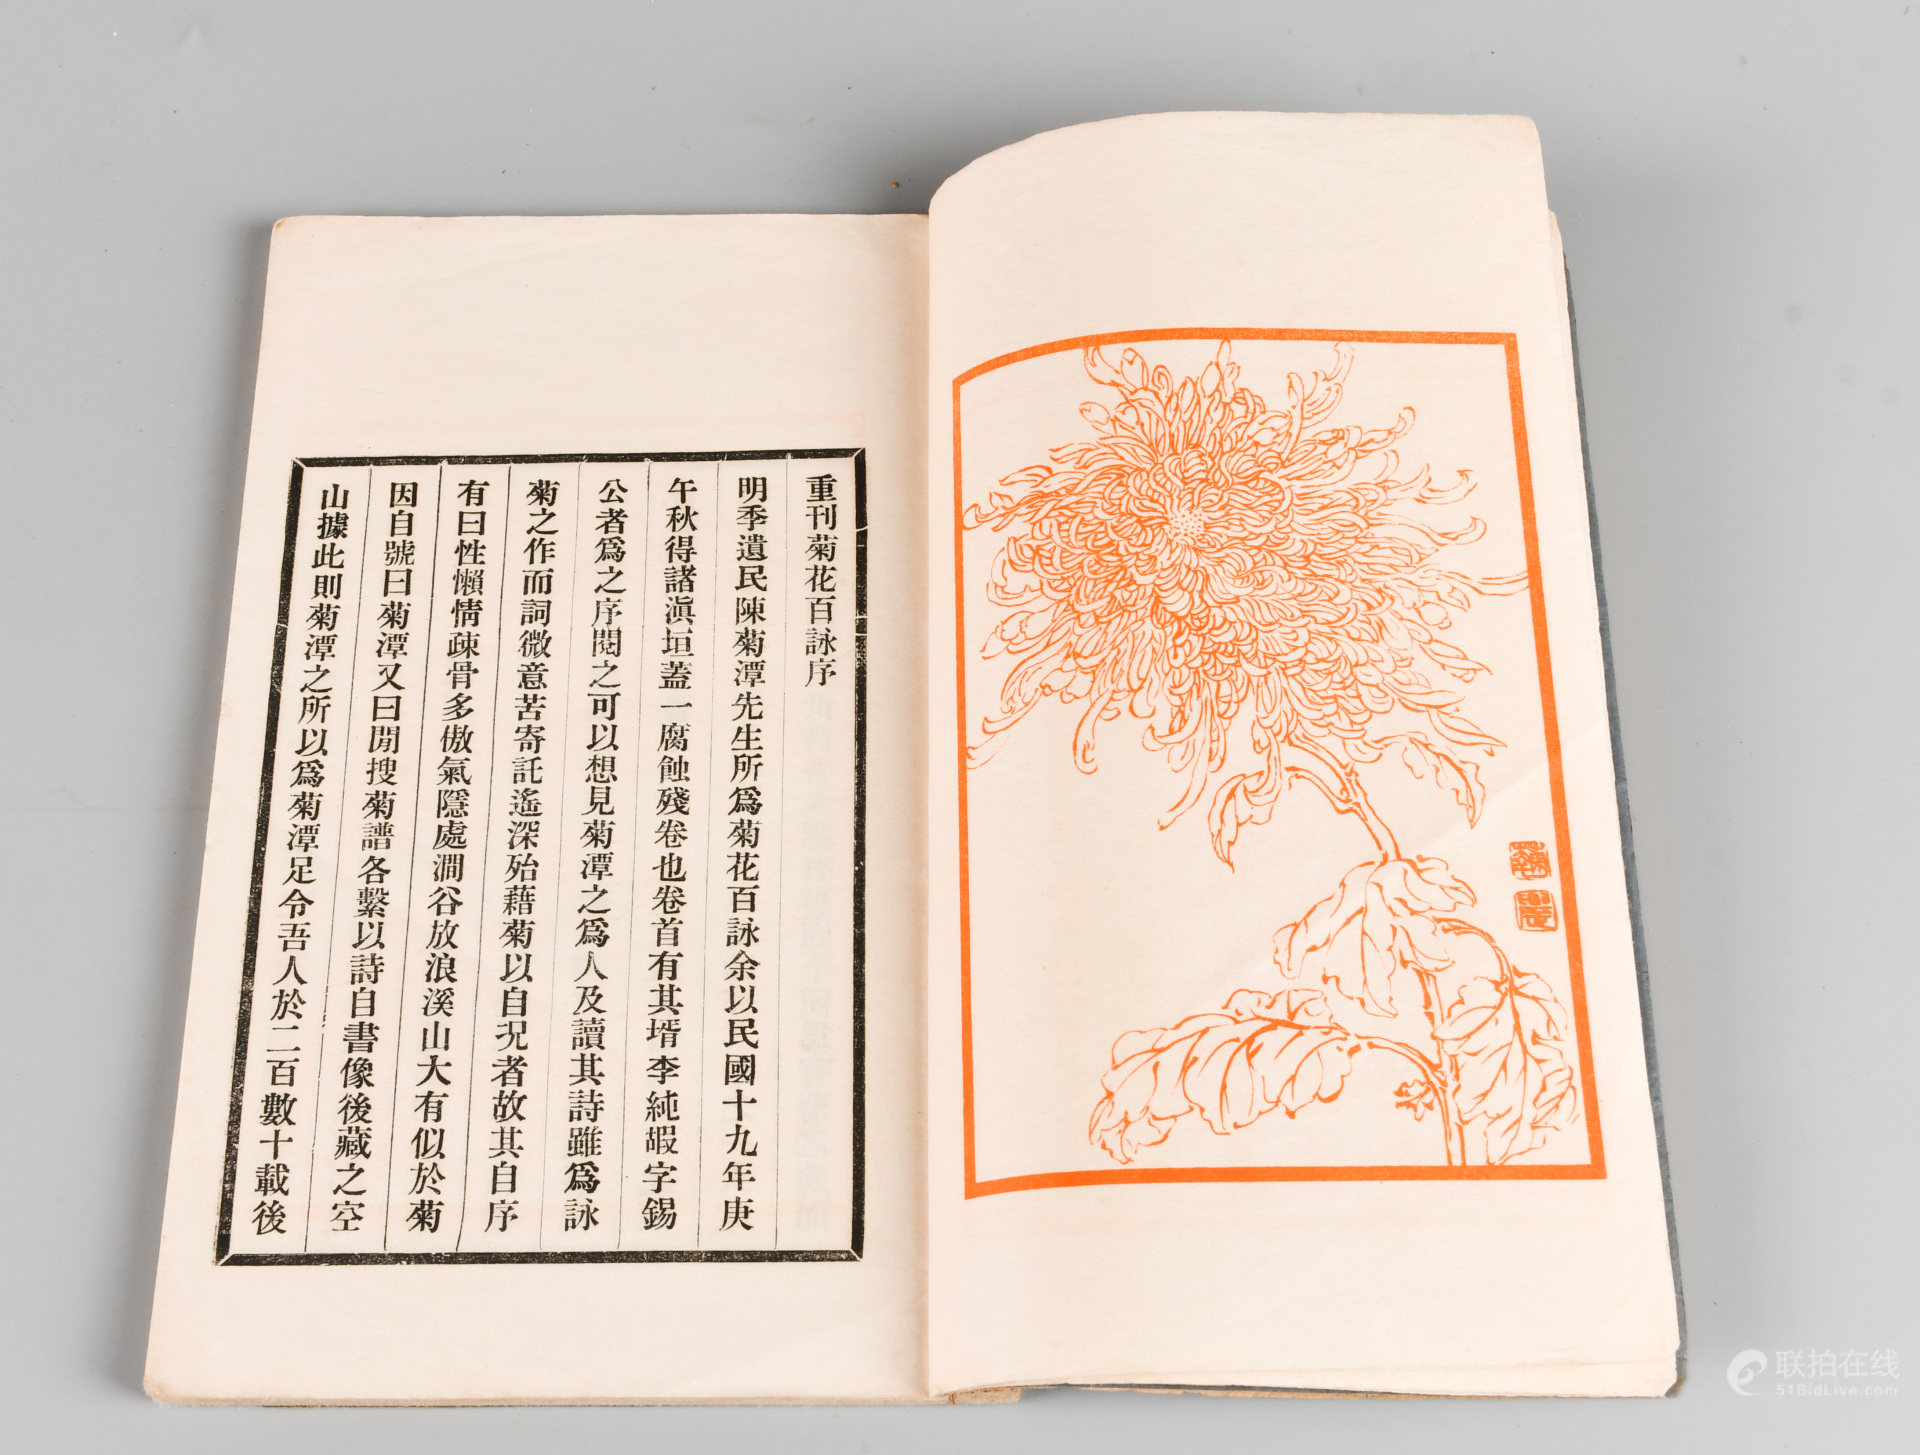 重刊菊花百詠序
明季遺民陳菊潭先生所爲菊花百詠余以民國十九年庚
午秋得諸滇垣蓋一腐蝕殘卷也卷首有其壻李純嘏字錫
公者爲之序閱之可以想見菊潭之爲人及讀其詩雖爲詠
菊之作而詞微意苦寄託遙深殆藉菊以自况者故其自序
有曰性懶情疎骨多傲氣隱處澗谷放浪溪山大有似於菊
因自號曰菊潭又曰閒搜菊譜各繫以詩自書像後藏之空
山據此則菊潭之所以爲菊潭足令吾人於二百數十載後
联拍在线
51BidLive.com